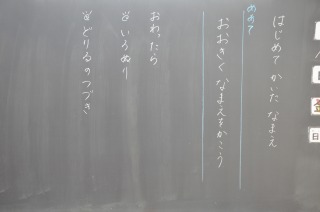 はじめて かいた なまえ
めあて
おおきく なまえをかこう
おわったら
※いろぬり
※どりるのつづき
日